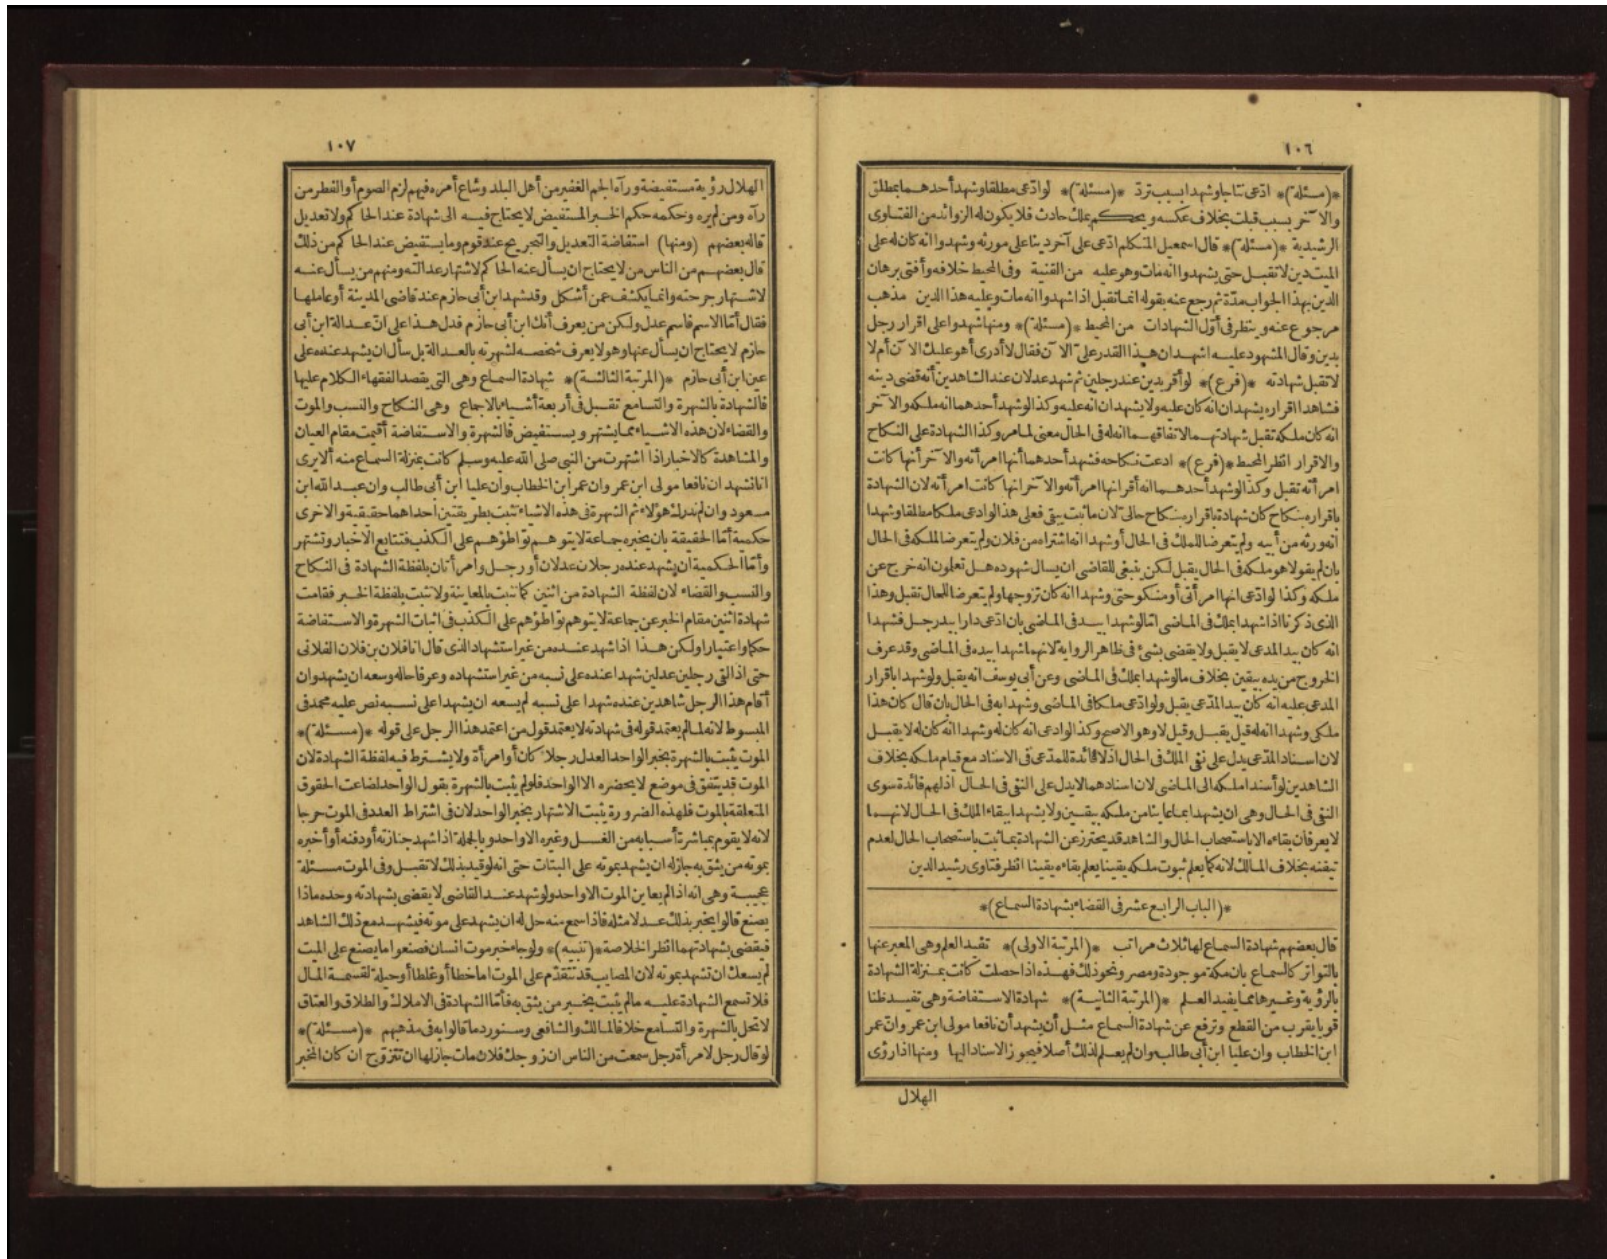 ١٠٦
*(مسئلة)* ادّعى نتاجا وشهدا بسبب تردّ *(مسئلة)* لو ادّعى مطلقا وشهد أحدهما بمطلق
والآخر بسبب قبلت بخلاف عكسه ويحكم بملك حادث فلا يكون له الزوائد من الفتاوى
الرشيدية *(مسئلة)* قال اسمعيل المتكلم ادّعى على آخر دينا على مورثه وشهدوا انه كان له على
الميت دين لا تقبل حتى يشهدوا انه مات وهو عليه من القنية وفى المحيط خلافه وأفتى برهان
الدين بهذا الجواب مدّة ثم رجع عنه بقوله انما تقبل اذا شهدوا انه مات وعليه هذا الدين مذهب
مرجوع عنه وينظر فى أوّل الشهادات من المحيط *(مسئلة)* ومنها شهدوا على اقرار رجل
بدين وقال المشهود عليه اشهد ان هذا القدر علىّ الآن فقال لا أدرى أهو عليك الآن أم لا
لا تقبل شهادته *(فرع)* لو أقر بدين عند رجلين ثم شهد عدلان عند الشاهدين أنه قضى دينه
فشاهدا اقراره يشهدان انه كان عليه ولا يشهدان انه عليه وكذا لو شهد أحدهما انه ملكه والآخر
انه كان ملكه تقبل شهادتهما لاتفاقهما انه له فى الحال معنى لما مر وكذا الشهادة على النكاح
والاقرار انظر المحيط *(فرع)* ادعت نكاحه فشهد أحدهما أنها امرأته والآخر أنها كانت
امرأته تقبل وكذا لو شهد أحدهما انه أقر انها امرأته والآخر انها كانت امرأته لان الشهادة
باقراره بنكاح كان شهادة باقراره بنكاح حالىّ لان ما ثبت يبقى فعلى هذا لو ادعى ملكا مطلقا وشهدا
انه ورثه من أبيه ولم يتعرضا للملك فى الحال أو شهدا انه اشتراه من فلان ولم يتعرضا لملكه فى الحال
بان لم يقولا هو ملكه فى الحال يقبل لكن ينبغى للقاضى ان يسال شهوده هل تعلمون انه خرج عن
ملكه وكذا لو ادّعى انها امرأتى أو منكوحتى وشهدا انه كان تزوجها ولم يتعرضا للحال تقبل وهذا
الذى ذكرنا اذا شهدا بملك فى الماضى امّا لو شهدا بيد فى الماضى بان ادّعى دارا بيد رجل فشهدا
انه كان بيد المدعى لا يقبل ولا يقضى بشئ فى ظاهر الرواية لانهما شهدا بيده فى الماضى وقد عرف
الخروج من يده بيقين بخلاف ما لو شهدا بملك فى الماضى وعن أبى يوسف انه يقبل ولو شهدا باقرار
المدعى عليه انه كان بيد المدّعى يقبل ولو ادّعى ملكا فى الماضى وشهدا به فى الحال بان قال كان هذا
ملكى وشهدا انه له قيل يقبل وقيل لا وهو الاصح وكذا لو ادعى انه كان له وشهدا انه كان له لا يقبل
لان اسناد المدّعى يدل على نفى الملك فى الحال اذ لا فائدة للمدّعى فى الاسناد مع قيام ملكه بخلاف
الشاهدين لو أسندا ملكه الى الماضى لان اسنادهما لا يدل على النفى فى الحال اذ لهم فائدة سوى
النفى فى الحال وهى ان يشهدا بما عاينا من ملكه بيقين ولا يشهدا ببقاء الملك فى الحال لانهما
لا يعرفان بقاءه الا باستصحاب الحال والشاهد قد يحترز عن الشهادة بما ثبت باستصحاب الحال لعدم
تيقنه بخلاف المالك لانه كما يعلم ثبوت ملكه يقينا يعلم بقاءه يقينا انظر فتاوى رشيد الدين
*(الباب الرابع عشر فى القضاء بشهادة السماع)*
قال بعضهم شهادة السماع لها ثلاث مراتب *(المرتبة الاولى)* تفيد العلم وهى المعبر عنها
بالتواتر كالسماع بان مكة موجودة ومصر ونحو ذلك فهذه اذا حصلت كانت بمنزلة الشهادة
بالرؤية وغيرها مما يفيد العلم *(المرتبة الثانية)* شهادة الاستفاضة وهى تفيد ظنا
قويا يقرب من القطع وترفع عن شهادة السماع مثل أن يشهد أن نافعا مولى ابن عمر وانّ عمر
ابن الخطاب وان عليا ابن أبى طالب وان لم يعلم لذلك أصلا فيجوز الاسناد اليها ومنها اذا رؤى
الهلال
١٠٧
الهلال رؤية مستفيضة ورآه الجم الغفير من أهل البلد وشاع أمره فيهم لزم الصوم أو الفطر من
رآه ومن لم يره وحكمه حكم الخبر المستفيض لا يحتاج فيه الى شهادة عند الحاكم ولا تعديل
قاله بعضهم (ومنها) استفاضة التعديل والتجريح عند قوم وما يستفيض عند الحاكم من ذلك
قال بعضهم من الناس من لا يحتاج ان يسأل عنه الحاكم لاشتهار عدالته ومنهم من يسأل عنه
لاشتهار جرحته وانما يكشف عمن أشكل وقد شهد ابن أبى حازم عند قاضى المدينة أو عاملها
فقال أمّا الاسم فاسم عدل ولكن من يعرف أنك ابن أبى حازم فدل هذا على انّ عدالة ابن أبى
حازم لا يحتاج ان يسأل عنها وهو لا يعرف شخصه لشهرته بالعدالة بل سأل ان يشهد عنده على
عين ابن أبى حازم *(المرتبة الثالثة)* شهادة السماع وهى التى يقصد الفقهاء الكلام عليها
فالشهادة بالشهرة والتسامع تقبل فى أربعة أشياء بالاجماع وهى النكاح والنسب والموت
والقضاء لان هذه الاشياء مما يشتهر ويستفيض فالشهرة والاستفاضة أقيمت مقام العيان
والمشاهدة كالاخبار اذا اشتهرت من النبى صلى الله عليه وسلم كانت بمنزلة السماع منه ألا يرى
انا نشهد ان نافعا مولى ابن عمر وان عمر ابن الخطاب وان عليا ابن أبى طالب وان عبد الله ابن
مسعود وان لم ندرك هؤلاء ثم الشهرة فى هذه الاشياء تثبت بطريقتين احداهما حقيقية والاخرى
حكمية أمّا الحقيقة بان يخبره جماعة لا يتوهم تواطؤهم على الكذب فتتابع الاخبار وتشتهر
وأمّا الحكمية ان يشهد عنده رجلان عدلان أو رجل وامرأتان بلفظة الشهادة فى النكاح
والنسب والقضاء لان لفظة الشهادة من اثنين كما تثبت بالمعاينة ولا تثبت بلفظة الخبر فقامت
شهادة اثنين مقام الخبر عن جماعة لا يتوهم تواطؤهم على الكذب فى اثبات الشهرة والاستفاضة
حكما واعتبارا ولكن هذا اذا شهد عنده من غير استشهاد الذى قال انا فلان بن فلان الفلانى
حتى اذا لقى رجلين عدلين شهدا عنده على نسبه من غير استشهاده وعرفا حاله وسعه ان يشهد وان
أقام هذا الرجل شاهدين عنده شهدا على نسبه لم يسعه ان يشهدا على نسبه نص عليه محمد فى
المبسوط لانه لما لم يعتمد قوله فى شهادته لا يعتمد قول من اعتمد هذا الرجل على قوله *(مسئلة)*
الموت يثبت بالشهرة بخبر الواحد العدل رجلا كان أو امرأة ولا يشترط فيه لفظة الشهادة لان
الموت قد يتفق فى موضع لا يحضره الا الواحد فلو لم يثبت بالشهرة بقول الواحد لضاعت الحقوق
المتعلقة بالموت فلهذه الضرورة يثبت الاشتهار بخبر الواحد لان فى اشتراط العدد فى الموت حرجا
لانه لا يقوم بمباشرة أسبابه من الغسل وغيره الا واحد وبالجملة اذا شهد جنازته أو دفنه أو أخبره
بموته من يثق به جاز له ان يشهد بموته على البتات حتى انه لو قيد بذلك لا تقبل وفى الموت مسئلة
عجيبة وهى انه اذا لم يعاين الموت الا واحد ولو شهد عند القاضى لا يقضى بشهادته وحده ماذا
يصنع قالوا يخبر بذلك عدلا مثله فاذا سمع منه حل له ان يشهد على موته فيشهد مع ذلك الشاهد
فيقضى بشهادتهما انظر الخلاصة *(تنبيه)* ولو جاء مخبر موت انسان فصنعوا ما يصنع على الميت
لم يسعك ان تشهد بموته لان المصايب قد تتقدّم على الموت اما خطأ أو غلطا أو حيلة لقسمة المال
فلا تسمع الشهادة عليه ما لم يثبت بخبر من يثق به فأمّا الشهادة فى الاملاك والطلاق والعتاق
لا تحل بالشهرة والتسامع خلافا لمالك والشافعى وسنورد ما قالوا به فى مذهبهم *(مسئلة)*
لو قال رجل لامرأة رجل سمعت من الناس ان زوجك فلان مات جاز لها ان تتزوّج ان كان المخبر